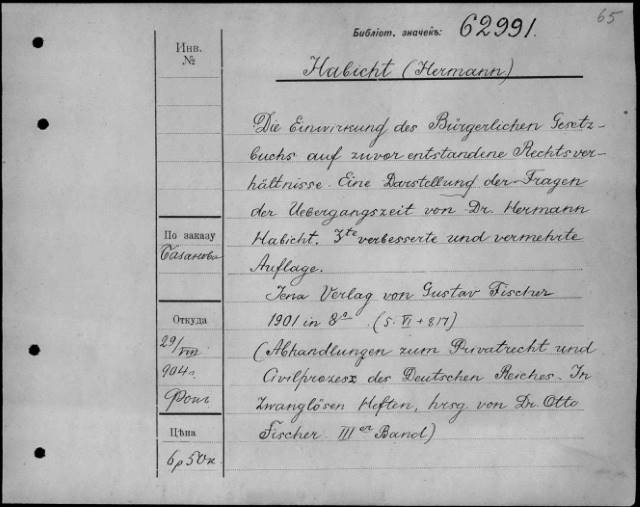 65
Библіот. значекъ: 62991.
Инв.
№
Habicht (Hermann)
Die Einwirkung des Bürgerlichen Gesetz-
buchs auf zuvor entstandene Rechtsver-
hältnisse. Eine Darstellung der Fragen
der Uebergangszeit von Dr. Hermann
Habicht. 3te verbesserte und vermehrte
Auflage.
Jena Verlag von Gustav Fischer
1901 in 8° (S. VI + 817)
(Abhandlungen zum Privatrecht und
Civilprozess des Deutschen Reiches. In
Zwanglösen Heften, hrsg. von Dr. Otto
Fischer. IIIer Band)
По заказу
Базанова
Откуда
29/VIII
904 г.
Фокъ
Цѣна
6 р 50 к